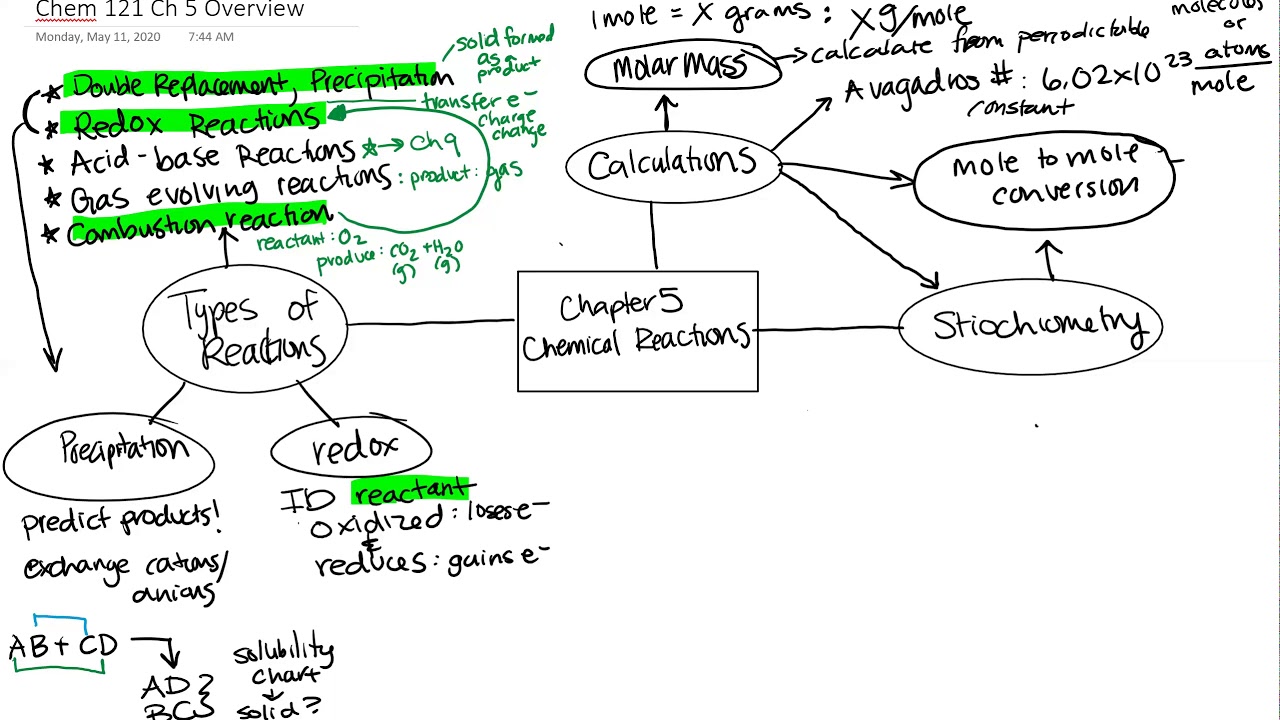 Chem 121 Ch 5 Overview
Monday, May 11, 2020 7:44 AM
solid formed
as a
product
* Double Replacement, Precipitation
* Redox Reactions
transfer e-
charge
change
* Acid-base Reactions * → Ch 9
* Gas evolving reactions : product: gas
* Combustion reaction
reactant: O2
produce: CO2 + H2O
(g) (g)
Types of
Reactions
Precipitation
predict products!
exchange cations/
anions
AB + CD
AD
BC
solubility
chart
solid?
redox
ID reactant
oxidized: loses e-
&
reduces: gains e-
Chapter 5
Chemical Reactions
Calculations
1 mole = X grams : X g/mole
Molar Mass
→ calculate from periodictable
molecules
or
atoms
mole
Avagadros #: 6.02x10^23
constant
mole to mole
conversion
Stiochiometry